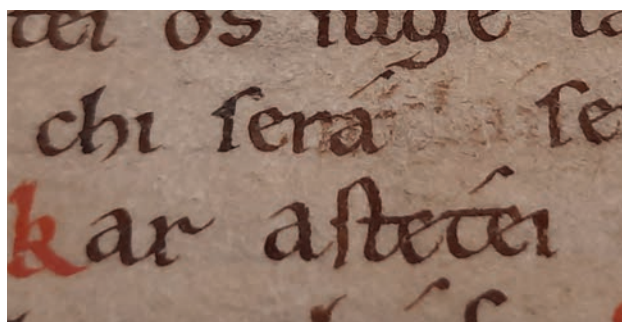 tei os iuge
chi ſerá ſe
kar aſtetéi